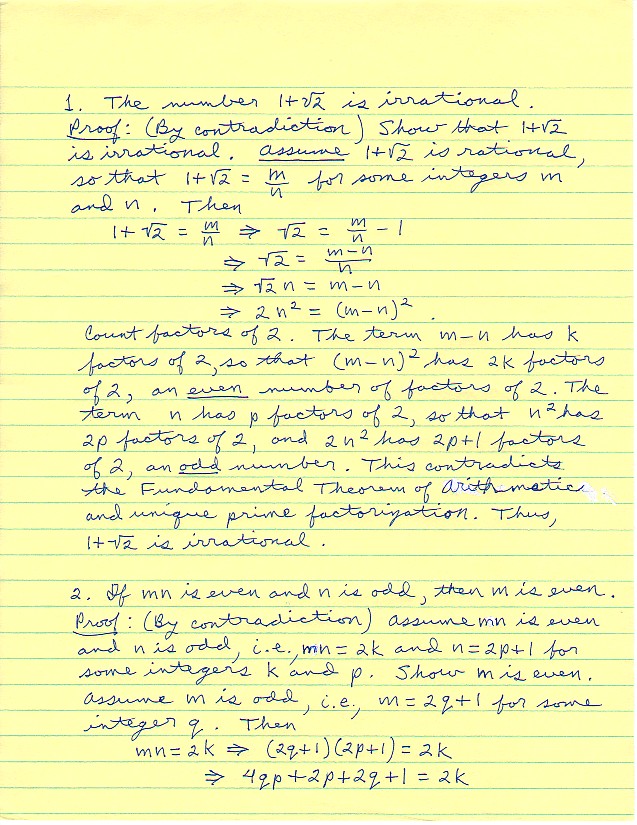 1. The number 1+√2 is irrational.
Proof: (By contradiction) Show that 1+√2
is irrational. Assume 1+√2 is rational,
so that 1+√2 = m/n for some integers m
and n. Then
1+√2 = m/n ⇒ √2 = m/n − 1
⇒ √2 = (m−n)/n
⇒ √2 n = m−n
⇒ 2n² = (m−n)².
Count factors of 2. The term m−n has k
factors of 2, so that (m−n)² has 2k factors
of 2, an even number of factors of 2. The
term n has p factors of 2, so that n² has
2p factors of 2, and 2n² has 2p+1 factors
of 2, an odd number. This contradicts
the Fundamental Theorem of Arithmetic
and unique prime factorization. Thus,
1+√2 is irrational.
2. If mn is even and n is odd, then m is even.
Proof: (By contradiction) Assume mn is even
and n is odd, i.e., mn = 2k and n = 2p+1 for
some integers k and p. Show m is even.
Assume m is odd, i.e., m = 2q+1 for some
integer q. Then
mn = 2k ⇒ (2q+1)(2p+1) = 2k
⇒ 4qp+2p+2q+1 = 2k